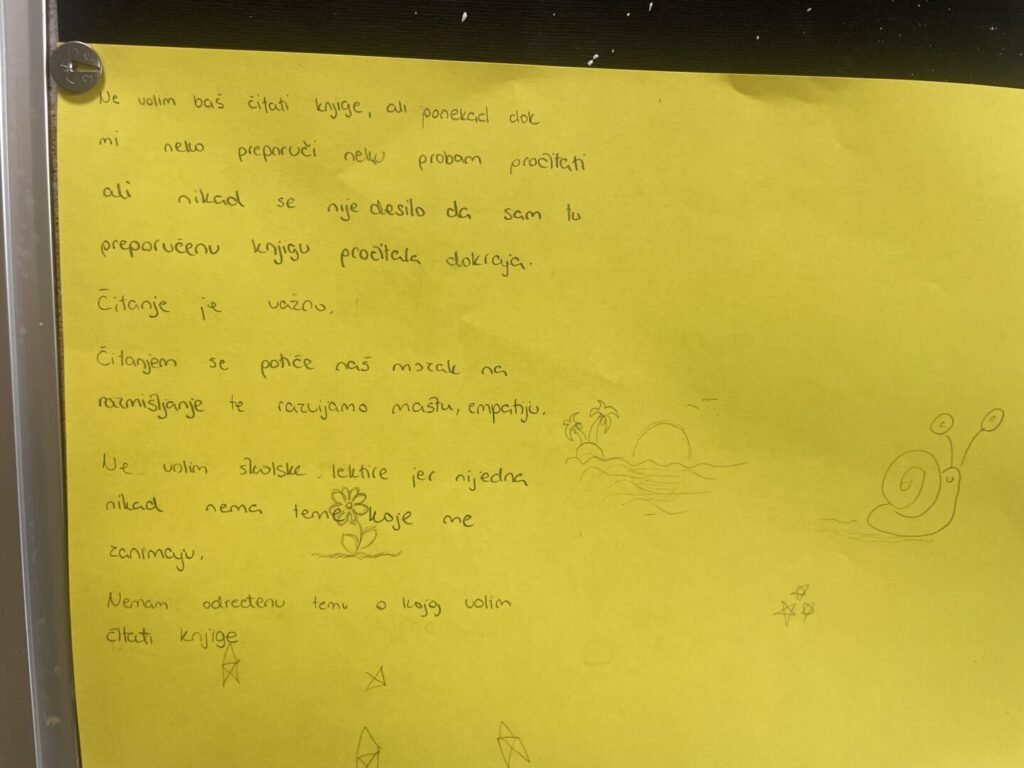 Ne volim baš čitati knjige, ali ponekad dok
mi neko preporuči neku probam pročitati
ali nikad se nije desilo da sam tu
preporučenu knjigu pročitala dokraja.
Čitanje je važno.
Čitanjem se potiče naš mozak na
razmišljanje te razvijamo maštu, empatiju.
Ne volim školske lektire jer nijedna
nikad nema teme koje me
zanimaju.
Nemam određenu temu o kojoj volim
čitati knjige